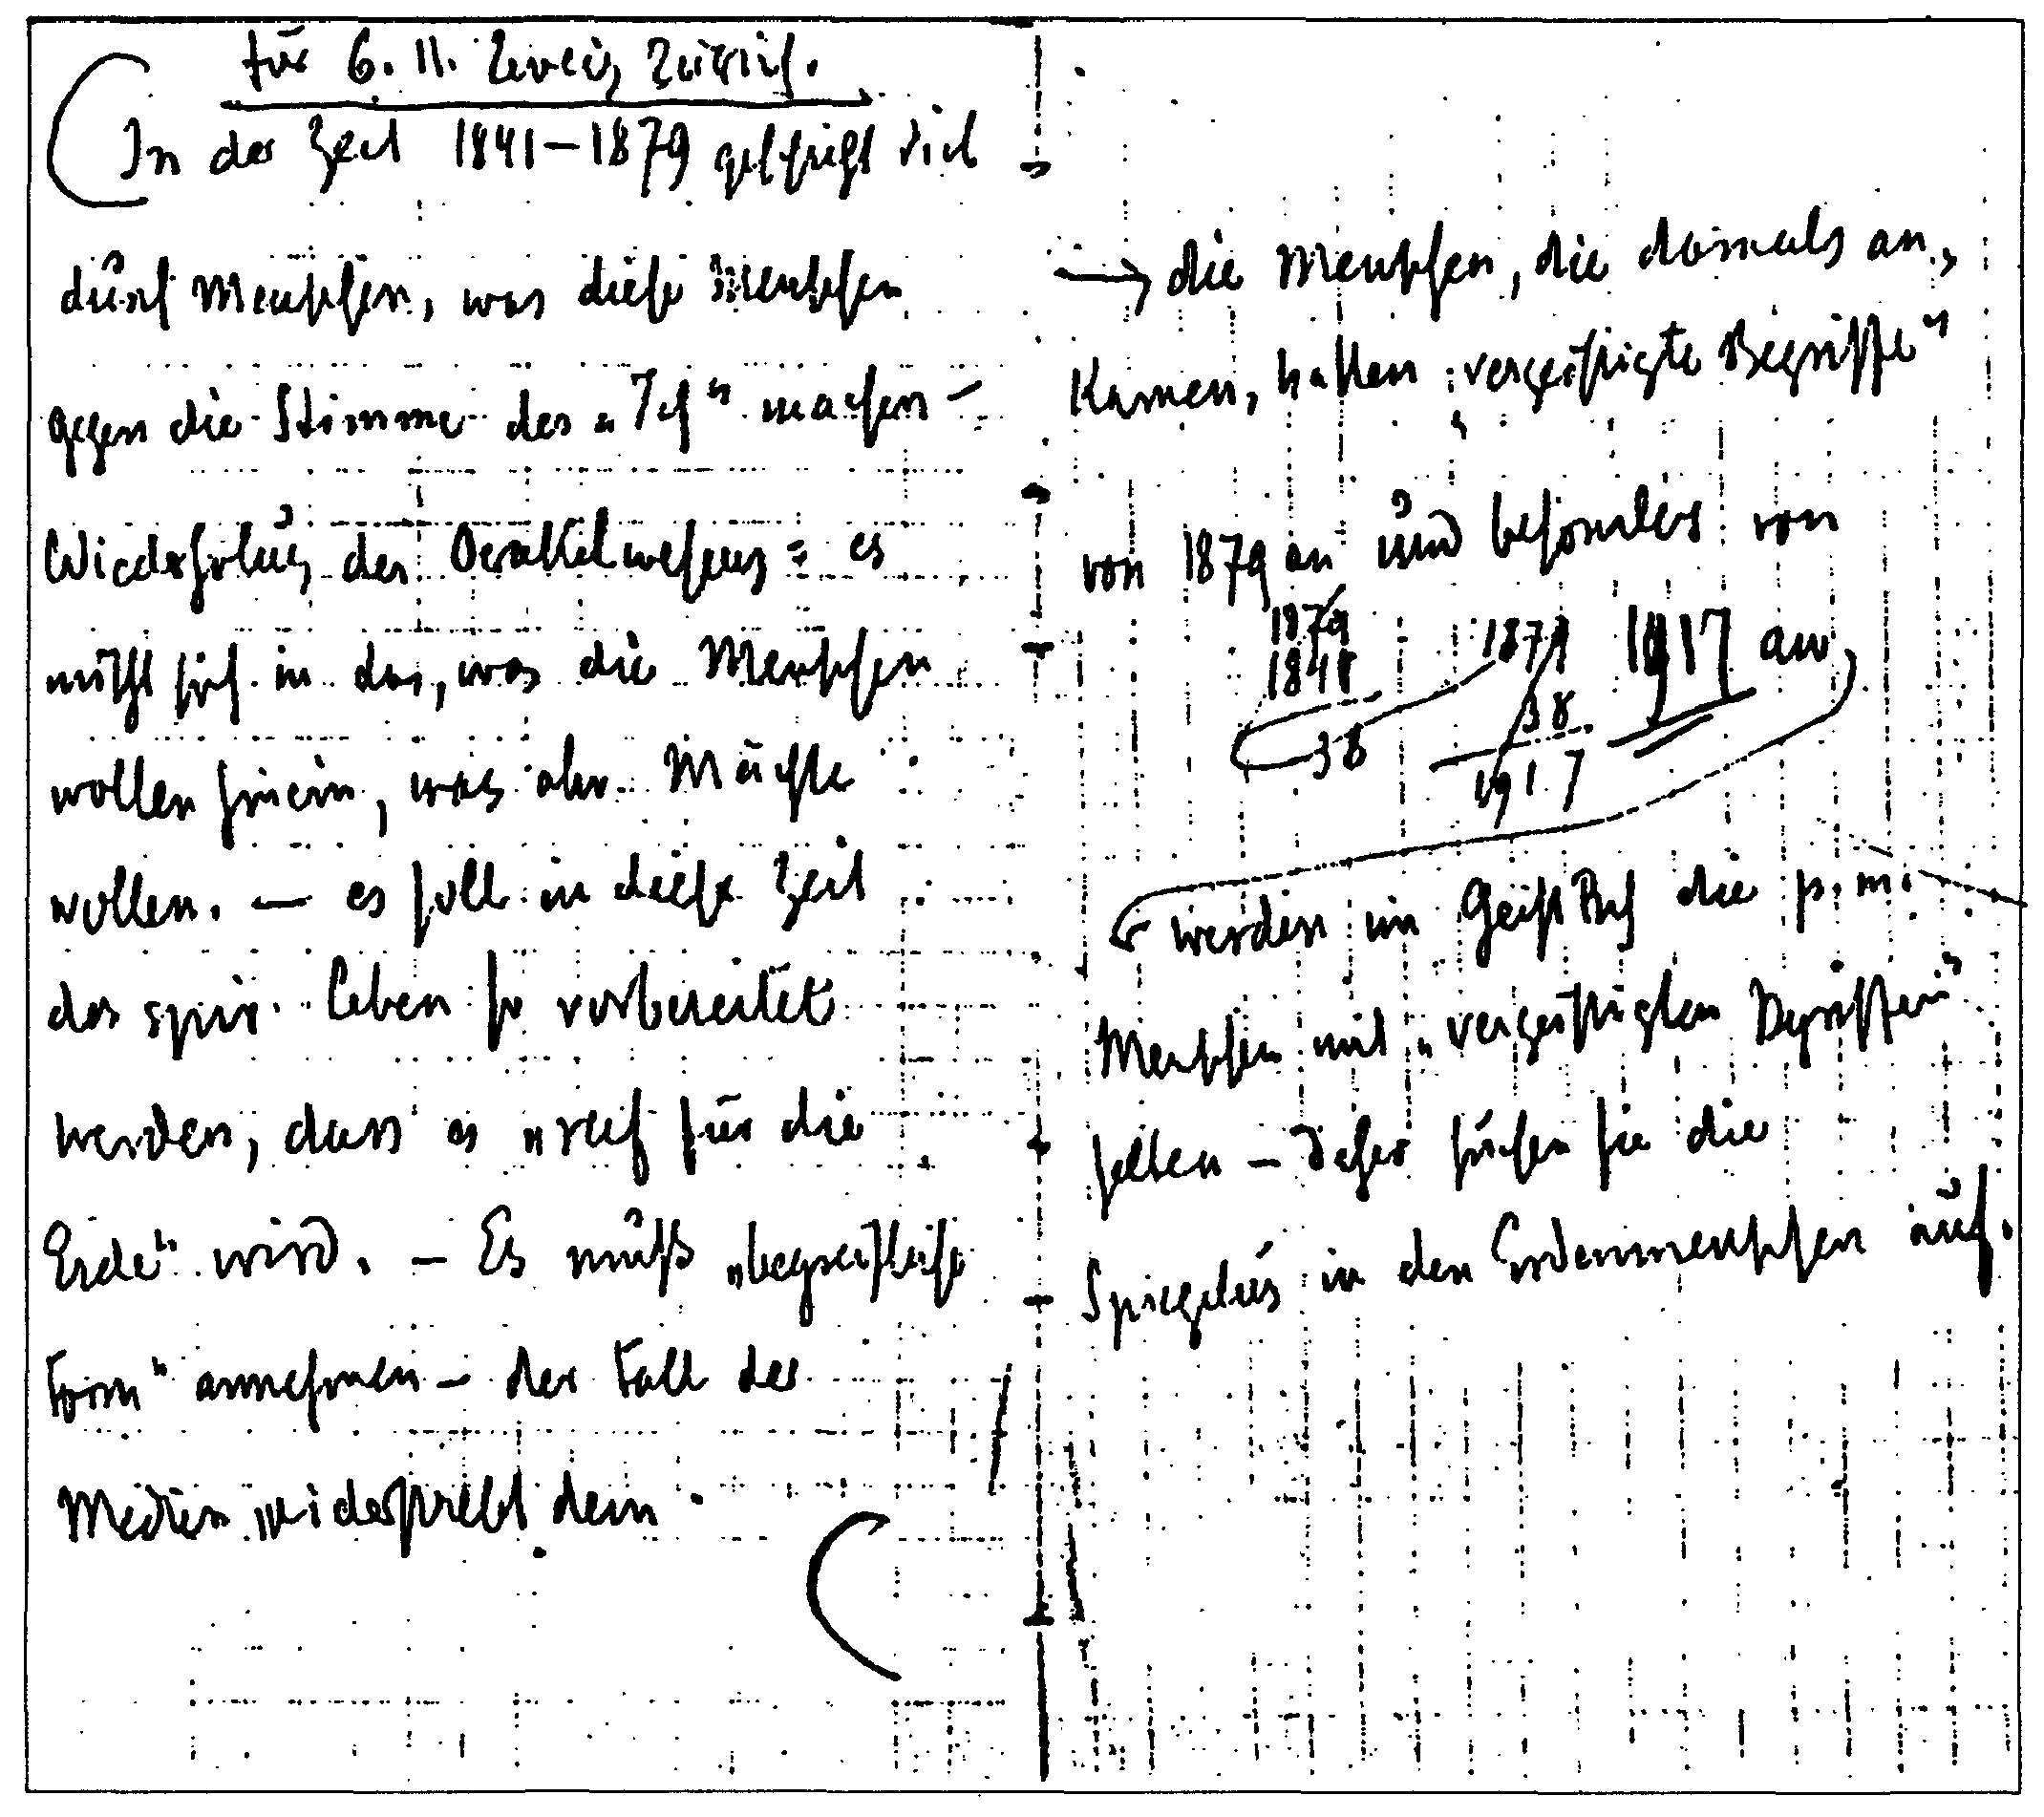 Für 6. 11. Zweig Zürich.
In der Zeit 1841–1879 geschieht sich
durch Menschen, was diese Menschen
gegen die Stimme des „Ich" machen –
Wiederholung des Orakelwesens = es
mischt sich in das, was die Menschen
wollen hinein, was aber Mächte
wollen. – es soll in dieser Zeit
das spir. Leben so vorbereitet
werden, dass es „reif für die
Erde" wird. – Es muß „begreifliche
Form" annehmen – der Fall der
Medien widerstrebt dem
→ die Menschen, die damals an,
kamen, hatten „vergeistigte Begriffe"
von 1879 an und besonders von
1879 1879 1917 an
1841 38
38 1917
werden im Geist die p. m.
Menschen mit „vergeistigten Begriffen"
selten – daher suchen sie die
Spiegelung in den Erdenmenschen auf.